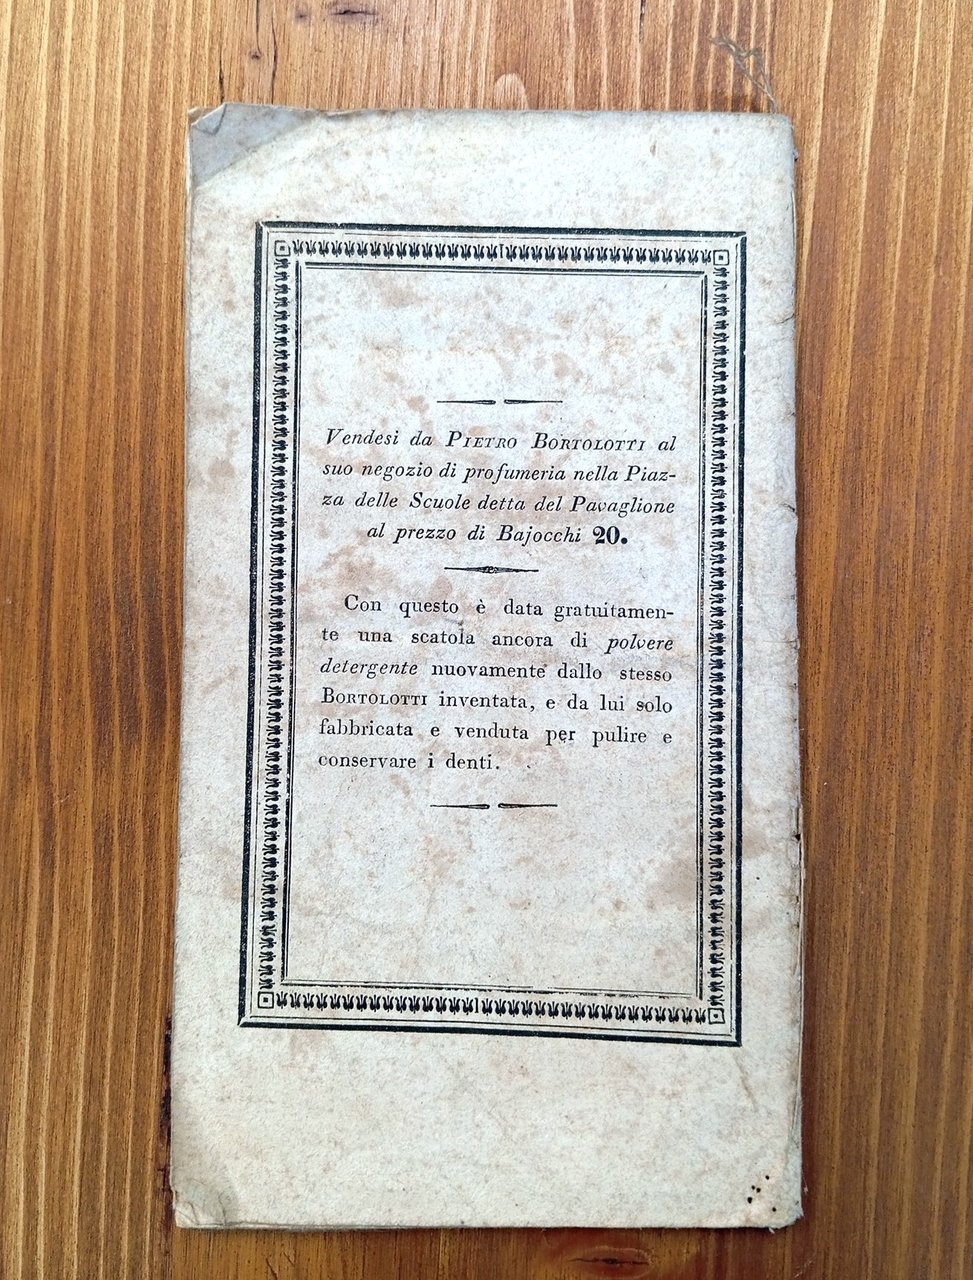 Vendesi da Pietro Bortolotti al
suo negozio di profumeria nella Piaz-
za delle Scuole detta del Pavaglione
al prezzo di Bajocchi 20.
Con questo è data gratuitamen-
te una scatola ancora di polvere
detergente nuovamente dallo stesso
Bortolotti inventata, e da lui solo
fabbricata e venduta per pulire e
conservare i denti.